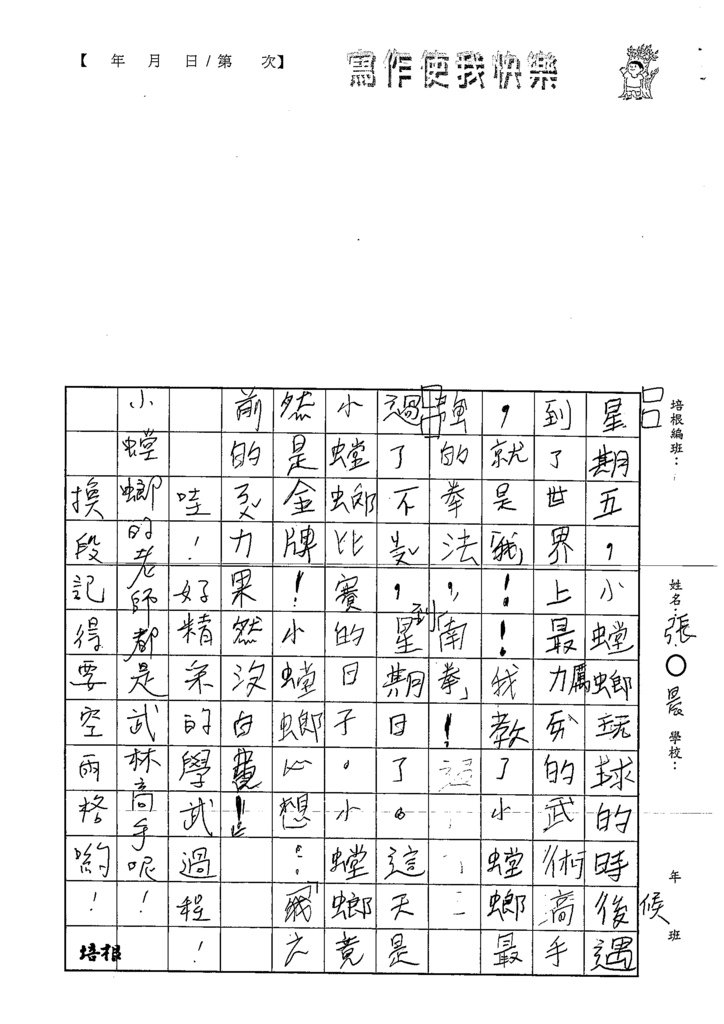 【　年　月　日/第　次】
寫作使我快樂
培根編班：
姓名：張〇晨 學校：
年　班
候
星期五，小螳螂玩球的時後遇
到了世界上最厲的武術高手
，就是我！！我教了小螳螂最
強的拳法，「南拳」！
過了不，到星期日了。這天是
小螳螂比賽的日子。小螳螂竟
然是金牌！小螳螂心想：「我之
前的ㄋㄨˇ力果然沒白費！」
哇！好精采的學武過程！
小螳螂的老師都是武林高手呢！
換段記得要空兩格喲！
培根